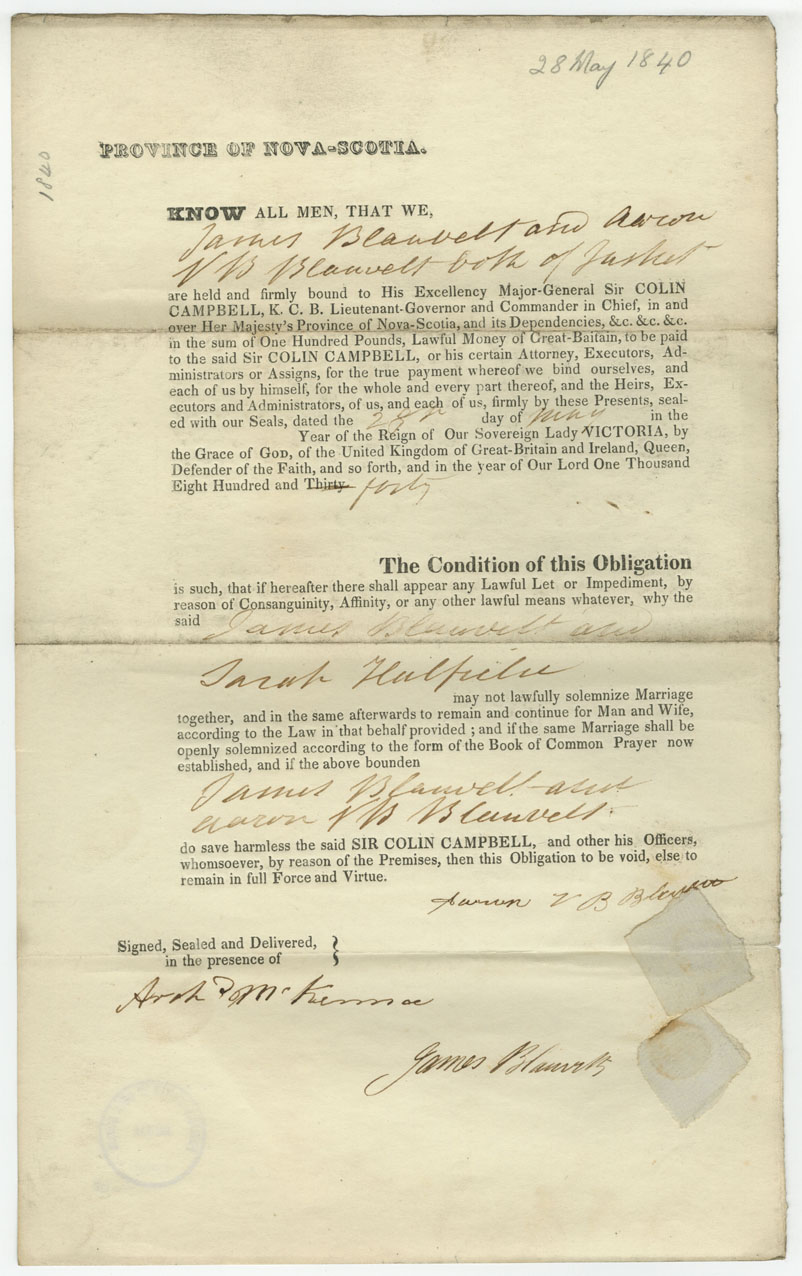 28 May 1840
1840
PROVINCE OF NOVA-SCOTIA.
KNOW ALL MEN, THAT WE,
James Blauvelt and Aaron
V B Blauvelt both of Tusket
are held and firmly bound to His Excellency Major-General Sir COLIN
CAMPBELL, K. C. B. Lieutenant-Governor and Commander in Chief, in and
over Her Majesty's Province of Nova-Scotia, and its Dependencies, &c. &c. &c.
in the sum of One Hundred Pounds, Lawful Money of Great-Baitain, to be paid
to the said Sir COLIN CAMPBELL, or his certain Attorney, Executors, Ad-
ministrators or Assigns, for the true payment whereof we bind ourselves, and
each of us by himself, for the whole and every part thereof, and the Heirs, Ex-
ecutors and Administrators, of us, and each of us, firmly by these Presents, seal-
ed with our Seals, dated the day of May in the
Year of the Reign of Our Sovereign Lady VICTORIA, by
the Grace of GOD, of the United Kingdom of Great-Britain and Ireland, Queen,
Defender of the Faith, and so forth, and in the year of Our Lord One Thousand
Eight Hundred and Thirty forty
The Condition of this Obligation
is such, that if hereafter there shall appear any Lawful Let or Impediment, by
reason of Consanguinity, Affinity, or any other lawful means whatever, why the
said James Blauvelt and
Sarah Hatfield
may not lawfully solemnize Marriage
together, and in the same afterwards to remain and continue for Man and Wife,
according to the Law in that behalf provided ; and if the same Marriage shall be
openly solemnized according to the form of the Book of Common Prayer now
established, and if the above bounden
James Blauvelt and
Aaron V B Blauvelt
do save harmless the said SIR COLIN CAMPBELL, and other his Officers,
whomsoever, by reason of the Premises, then this Obligation to be void, else to
remain in full Force and Virtue.
Aaron V B Blauvelt
Signed, Sealed and Delivered,
in the presence of
Archd McKinna
James Blauvelt